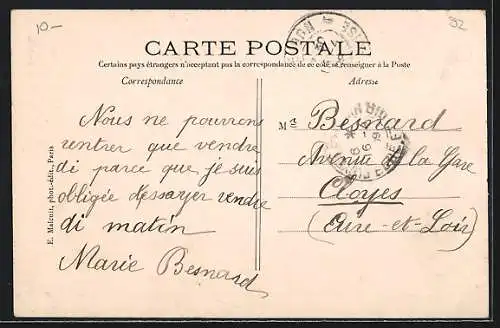 10-
92
CARTE POSTALE
Certains pays étrangers n'acceptent pas la correspondance de ce côté se renseigner à la Poste
Correspondance
Adresse
Nous ne pourrons
rentrer que vendre
di parce que je suis
obligée dessayer vendre
di matin
Marie Besnard
Me Besnard
Avenue de la Gare
Cloyes
(Eure-et-Loir)
E. Malcuit, phot.-édit., Paris